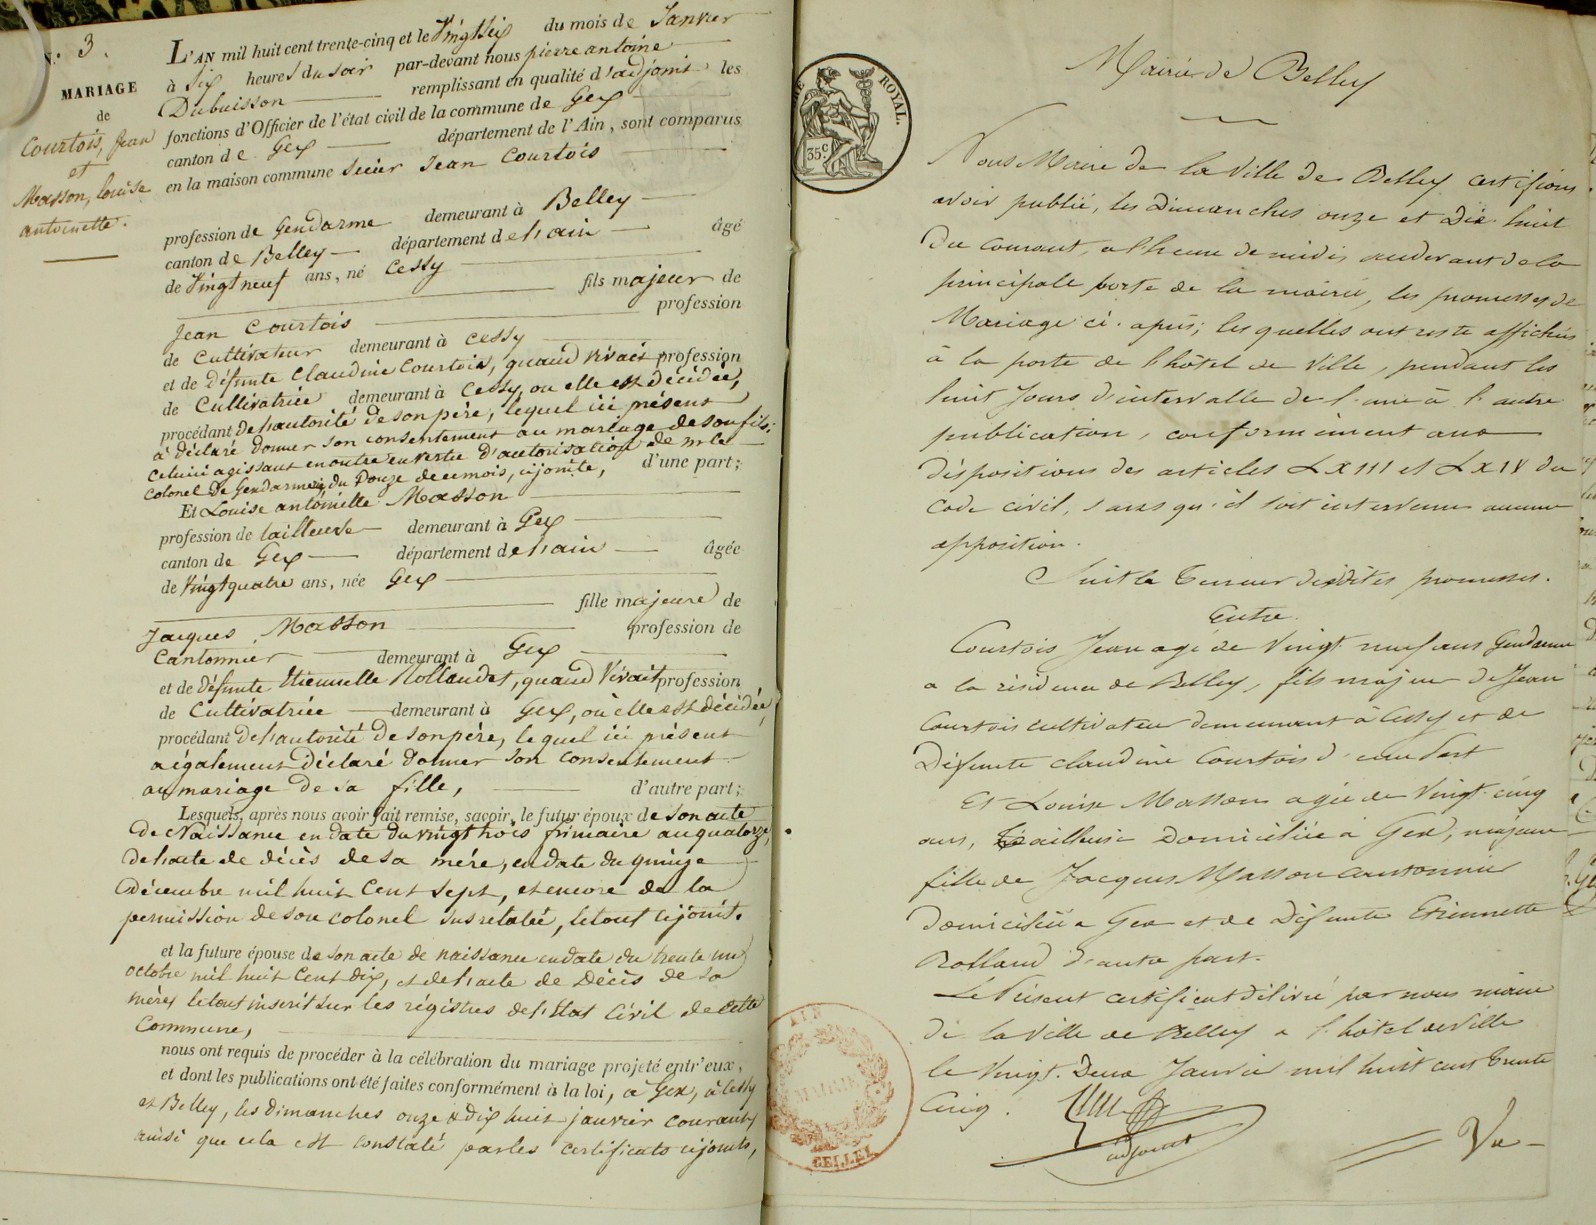 N.° 3.
MARIAGE
de
Courtois, Jean
et
Masson, louise
antoinette.
L'AN mil huit cent trente-cinq et le Vingt Six du mois de Janvier
à Six heures du soir par-devant nous pierre antoine
Dubuisson remplissant en qualité d'adjoint les
fonctions d'Officier de l'état civil de la commune de Gex
canton de Gex département de l'Ain, sont comparus
en la maison commune Sieur Jean Courtois
profession de Gendarme demeurant à Belley
canton de Belley département de l'ain âgé
de Vingt neuf ans, né Cessy
fils majeur de
Jean Courtois profession
de Cultivateur demeurant à Cessy
et de défunte Claudine Courtois, quand vivait profession
de Cultivatrice demeurant à Cessy, ou elle est décédée,
procédant de l'autorité de son père, lequel ici présent
a déclaré donner son consentement au mariage de son fils;
celui ici agissant en outre en vertu d'autorisation de mr le
Colonel de Gendarmerie du Douze de ce mois, cijointe, d'une part;
Et Louise antoinette Masson
profession de tailleuse demeurant à Gex
canton de Gex département de l'ain âgée
de Vingt quatre ans, née Gex
fille majeure de
Jacques Masson profession de
Cantonnier demeurant à Gex
et de défunte Etiennette Rollandet, quand Vivait profession
de Cultivatrice demeurant à Gex, où elle est décédée,
procédant de l'autorité de son père, lequel ici présent
a également déclaré donner son consentement
au mariage de sa fille, d'autre part;
Lesquels, après nous avoir fait remise, savoir, le futur époux de son acte
de Naissance en date du vingt trois frimaire an quatorze,
de l'acte de décès de sa mère, en date du quinze
décembre mil huit Cent Sept, et encore de la
permission de son colonel susrelatée, le tout cijoint.
et la future épouse de son acte de naissance en date du trente un
octobre mil huit Cent dix, et de l'acte de Décès de sa
mère, le tout inscrit sur les régistres de l'Etat Civil de cette
Commune,
nous ont requis de procéder à la célébration du mariage projeté entr'eux,
et dont les publications ont été faites conformément à la loi, a Gex, à Cessy
et Belley, les dimanches onze & dix huit janvier courant,
ainsi que cela est constaté par les certificats cijoints,
ROYAL.
35 C.
Mairie de Belley
Nous Maire de la Ville de Belley certifions
avoir publié, les Dimanches onze et Dix huit
du courant, a l'heure de midi, audevant de la
principale porte de la mairie, les promesses de
Mariage ci-après; les quelles ont resté affichées
à la porte de l'hôtel de Ville, pendant les
huit Jours d'intervalle de l'une à l'autre
publication, conformément aux
dispositions des articles LXIII et LXIV du
Code civil, sans qu'il soit intervenu aucune
opposition.
Suit la teneur desdites promesses.
Entre
Courtois Jean agé de Vingt neuf ans Gendarme
a la résidence de Belley, fils majeur de Jean
Courtois cultivateur demeurant à Cessy et de
Défunte Claudine Courtois d'une part
Et Louise Masson agée de Vingt-cinq
ans, tailleuse domiciliée à Gex, majeure
fille de Jacques Masson cantonnier
domicilié a Gex et de Défunte Etiennette
Rolland d'autre part.
Le Présent certificat délivré par nous maire
de la Ville de Belley a l'hôtel de Ville
le Vingt-Deux Janvier mil huit cent trente
Cinq.
adjoint
Vu
AIN
MAIRIE
BELLEY